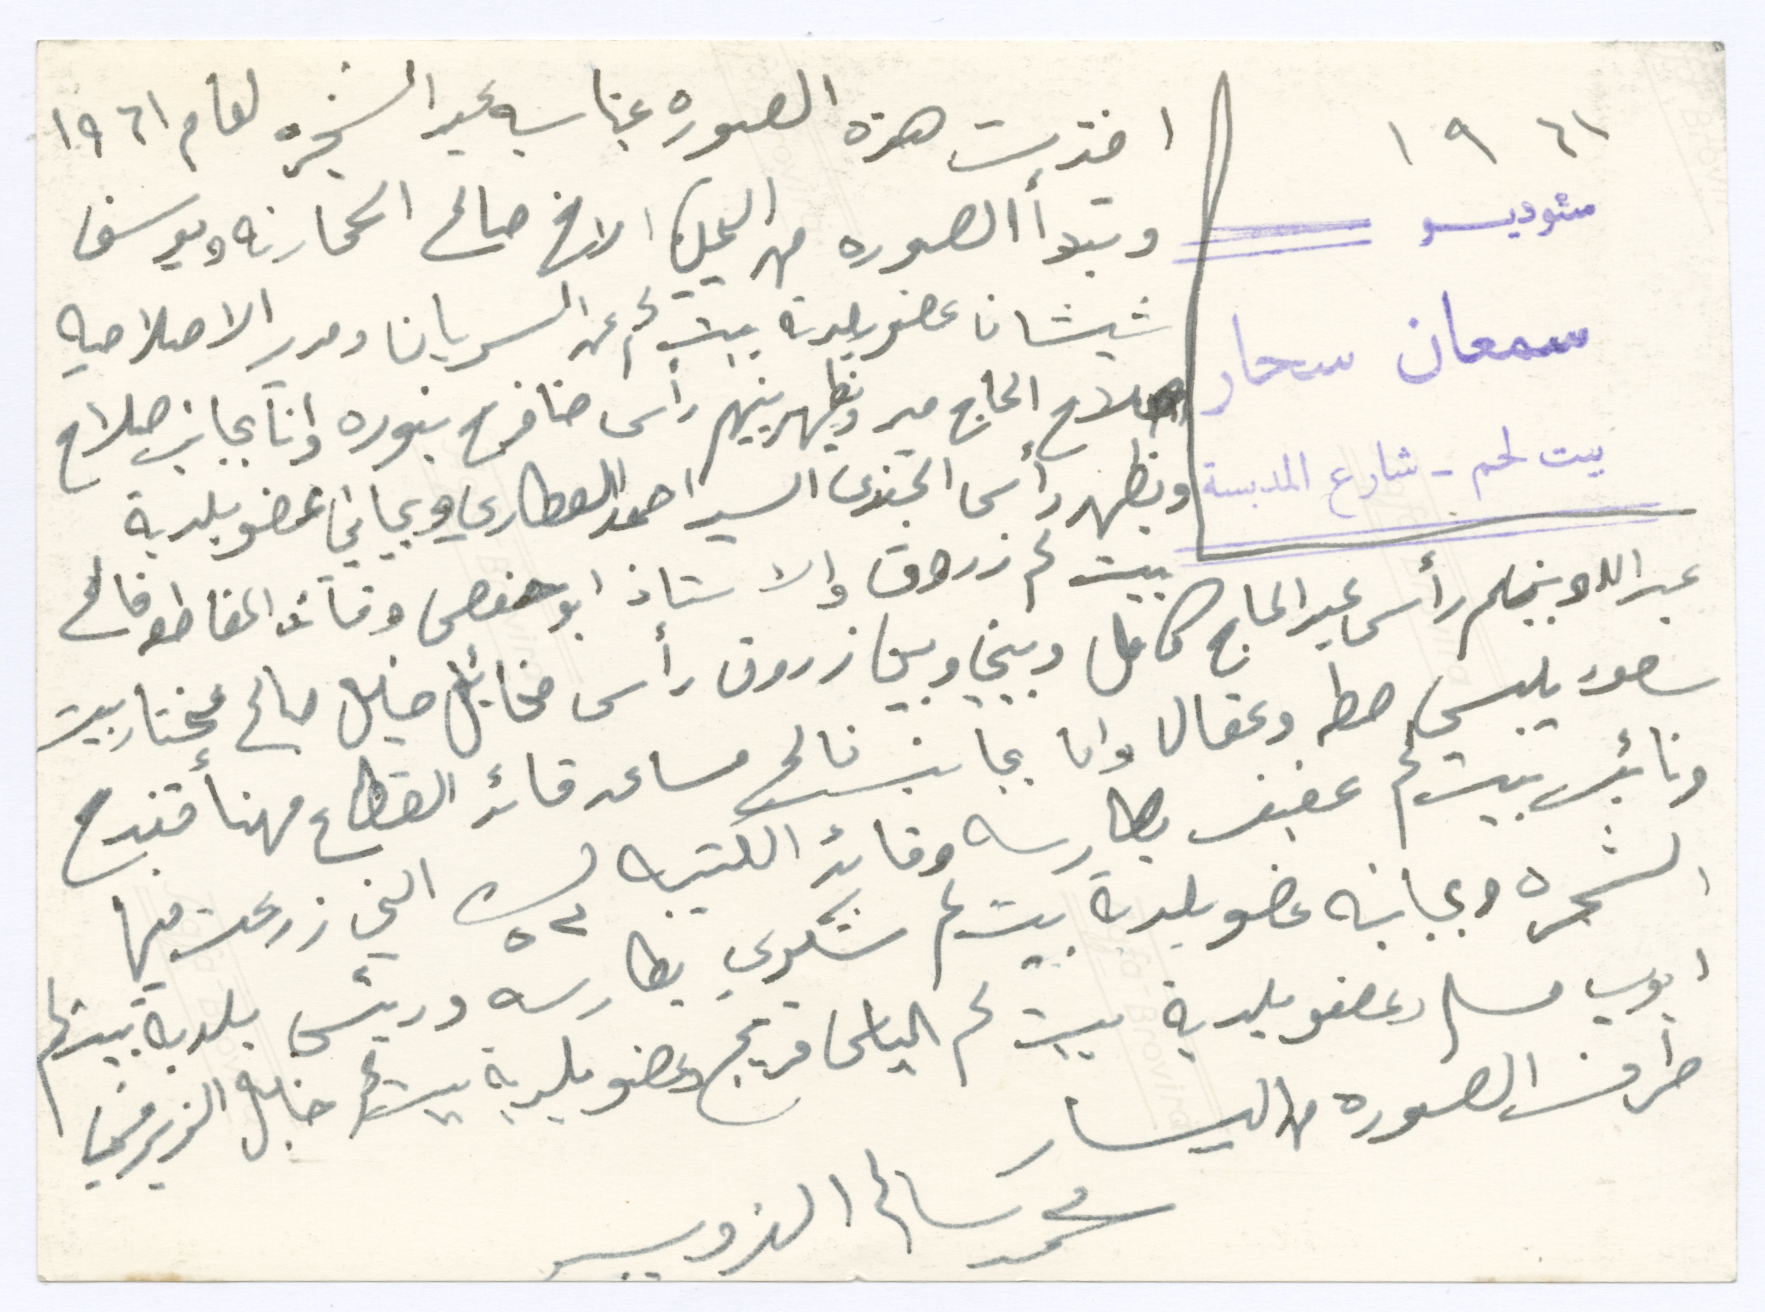 ١٩٦١
ستوديو
سمعان سحار
بيت لحم - شارع المدبسة
اخذت هذه الصوره بمناسبه عيد الشجره لعام ١٩٦١
وتبدأ الصوره من اليمين الاخ صالح الحمارنه ويوسف
شيشان عضو بلدية بيت لحم عن السريان ومدير الاصلاحيه
صلاح الحاج مير ويظهر بينهم رأس حنا فرح بنوره وانا بجانب صلاح
ويظهر رأس الجندي السيد احمد العطاري وبجانبي عضو بلدية
بيت لحم زروق والاستاذ ابو حفص وقائد المقاطعه فالح
عبد اللا وبينهم رأس عبد الحاج كامل وبيني وبين زروق رأس مخائيل خليل صالح مختار بيت
ساحور يلبس حطه وعقال وانا بجانب فالح مساعد قائد القطاع مهنا قندح
ونائب بيت لحم عفيف بطارسه وقائد الكتيبه ٥٢ التي زرعت فيها
الشجره وبجانبه عضو بلدية بيت لحم شكري بطارسه ورئيس بلدية بيت لحم
ايوب مسلم وعضو بلدية بيت لحم الياس فريج وعضو بلدية بيت لحم خليل
طرف الصوره من اليسار
محمد سالم الذويب